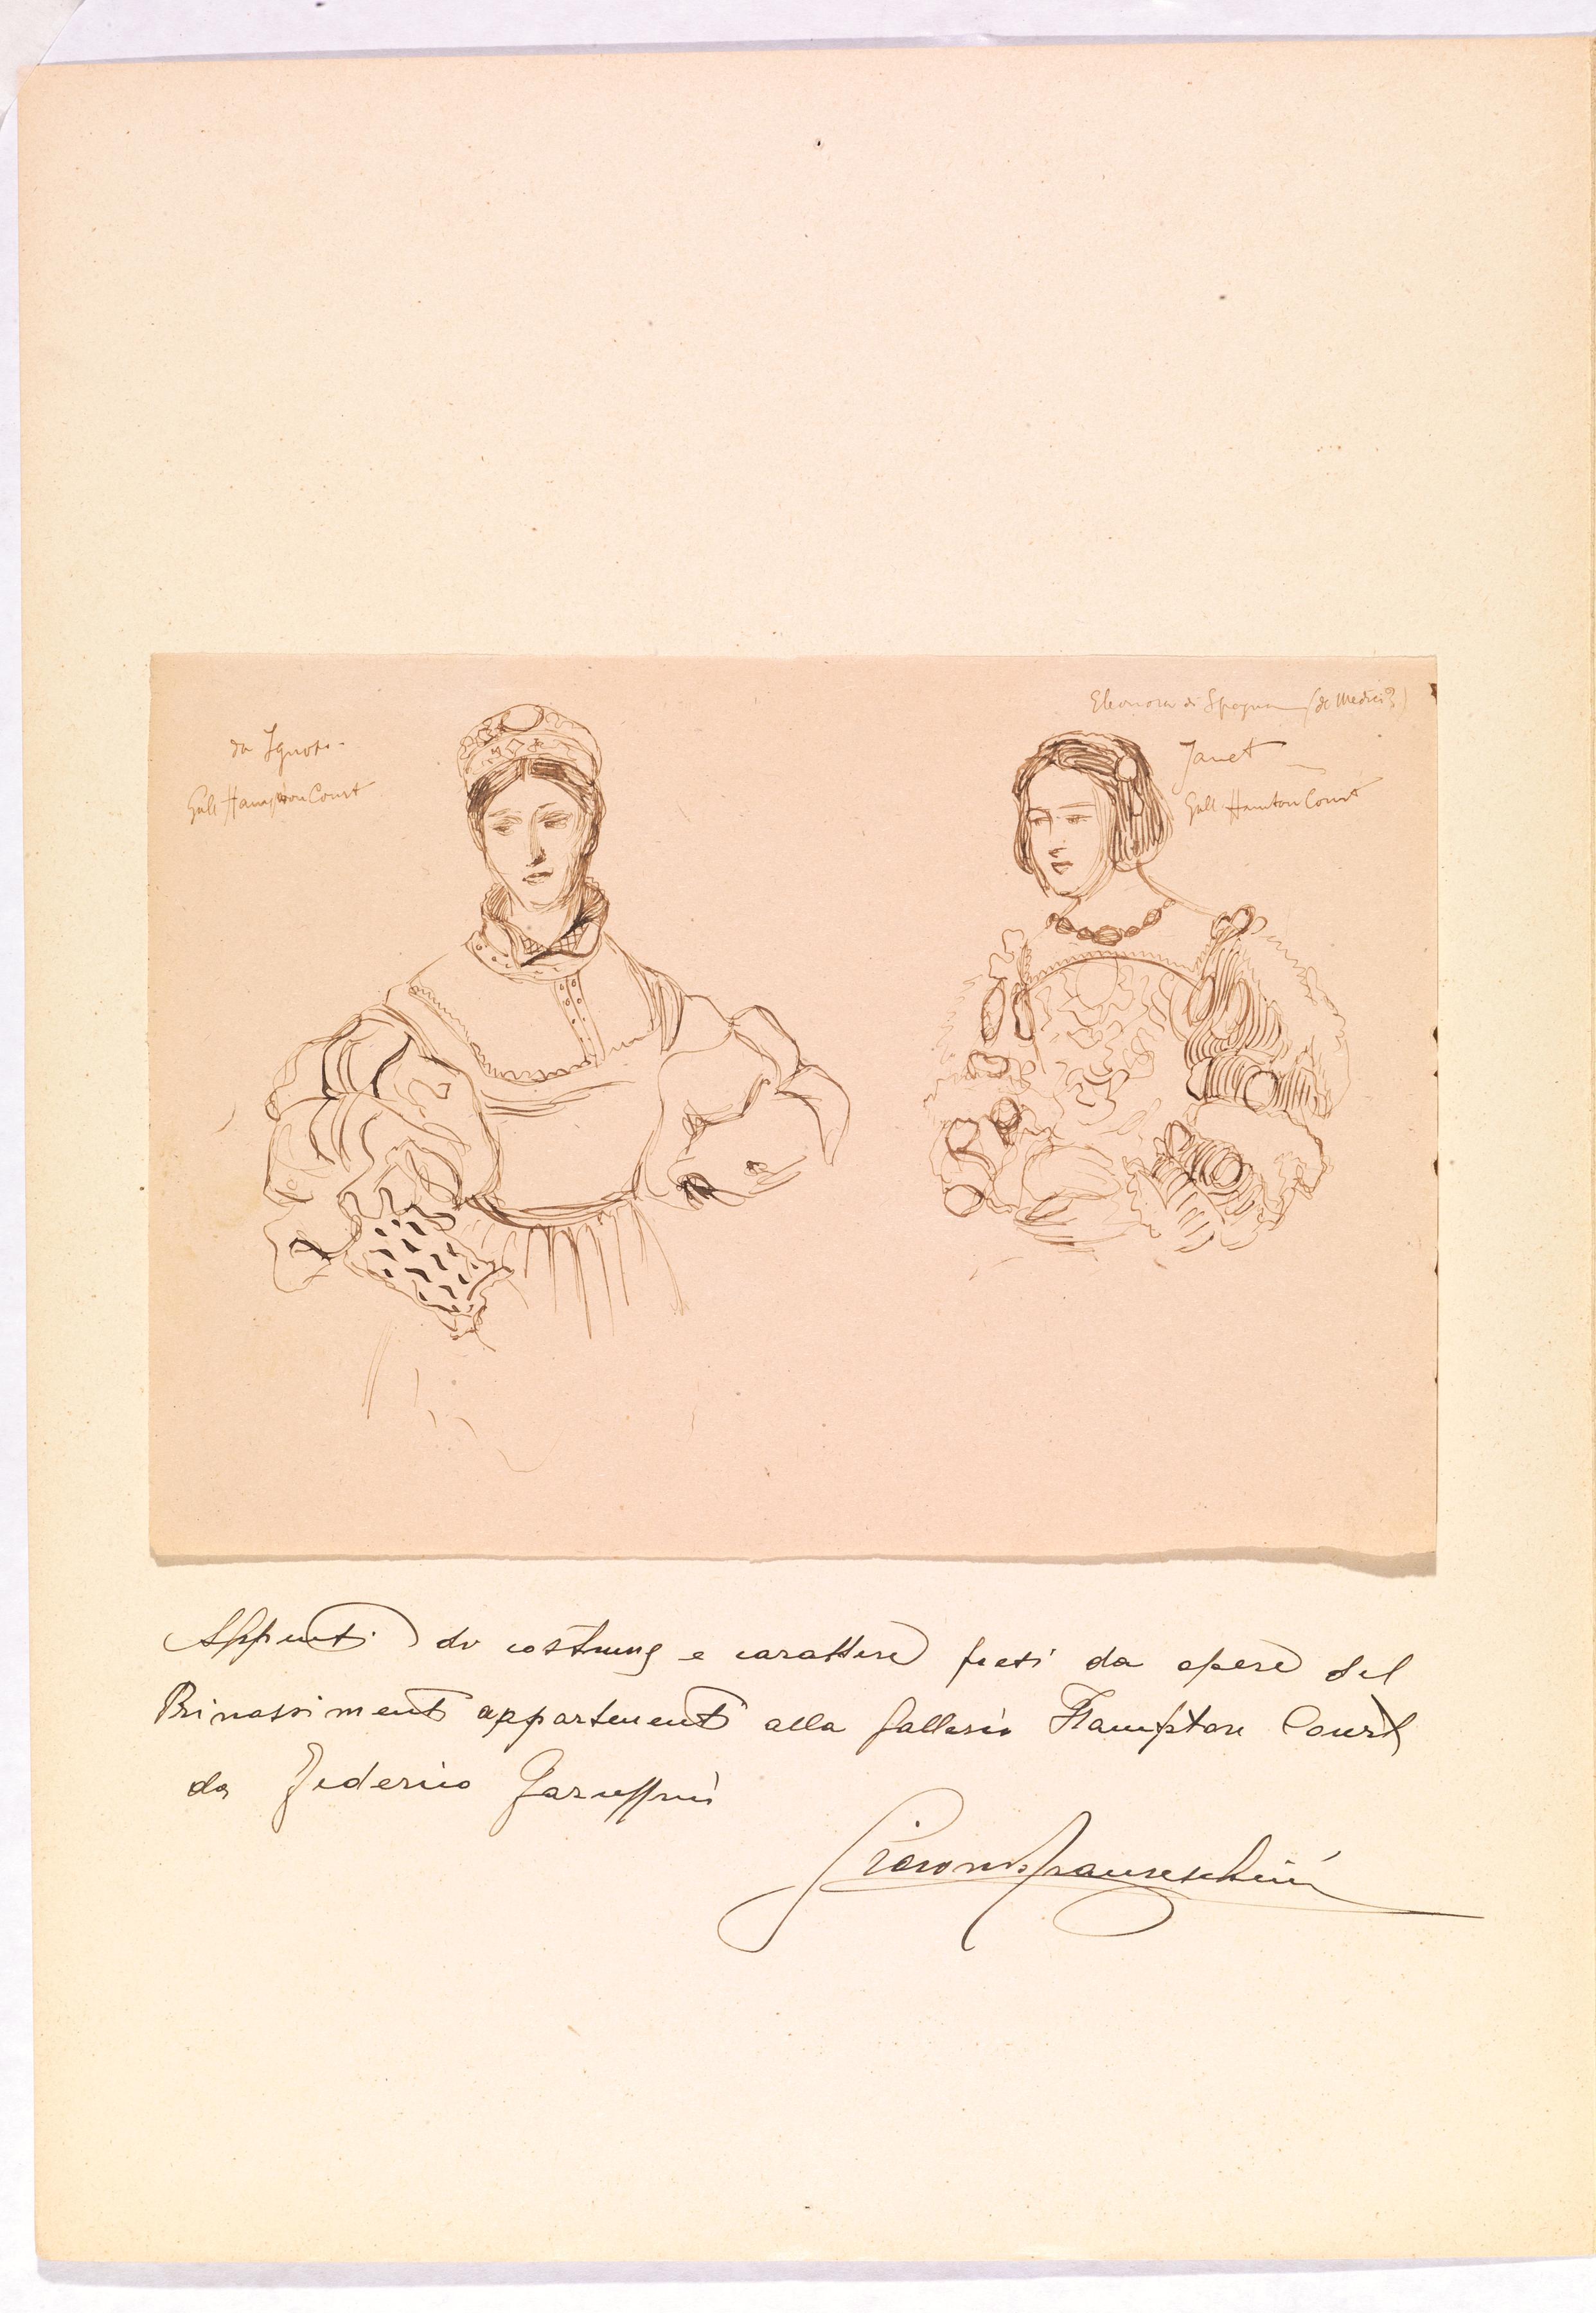 da Ignoto.
Gall Hampton Court
Eleonora di Spagna (de Medici?)
Janet
Gall Hamton Court
Appunti di costume e carattere presi da opere del
Rinascimento appartenenti alla Galleria Hampton Court
da Federico Faruffini
Giacomo Franceschini